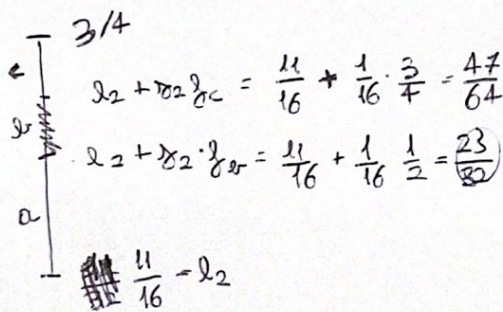 3/4
c
l₂ + r₂ f_c = 11/16 + 1/16 · 3/4 = 47/64
b
l₂ + r₂ · f_b = 11/16 + 1/16 1/2 = 23/32
a
11/16 = l₂